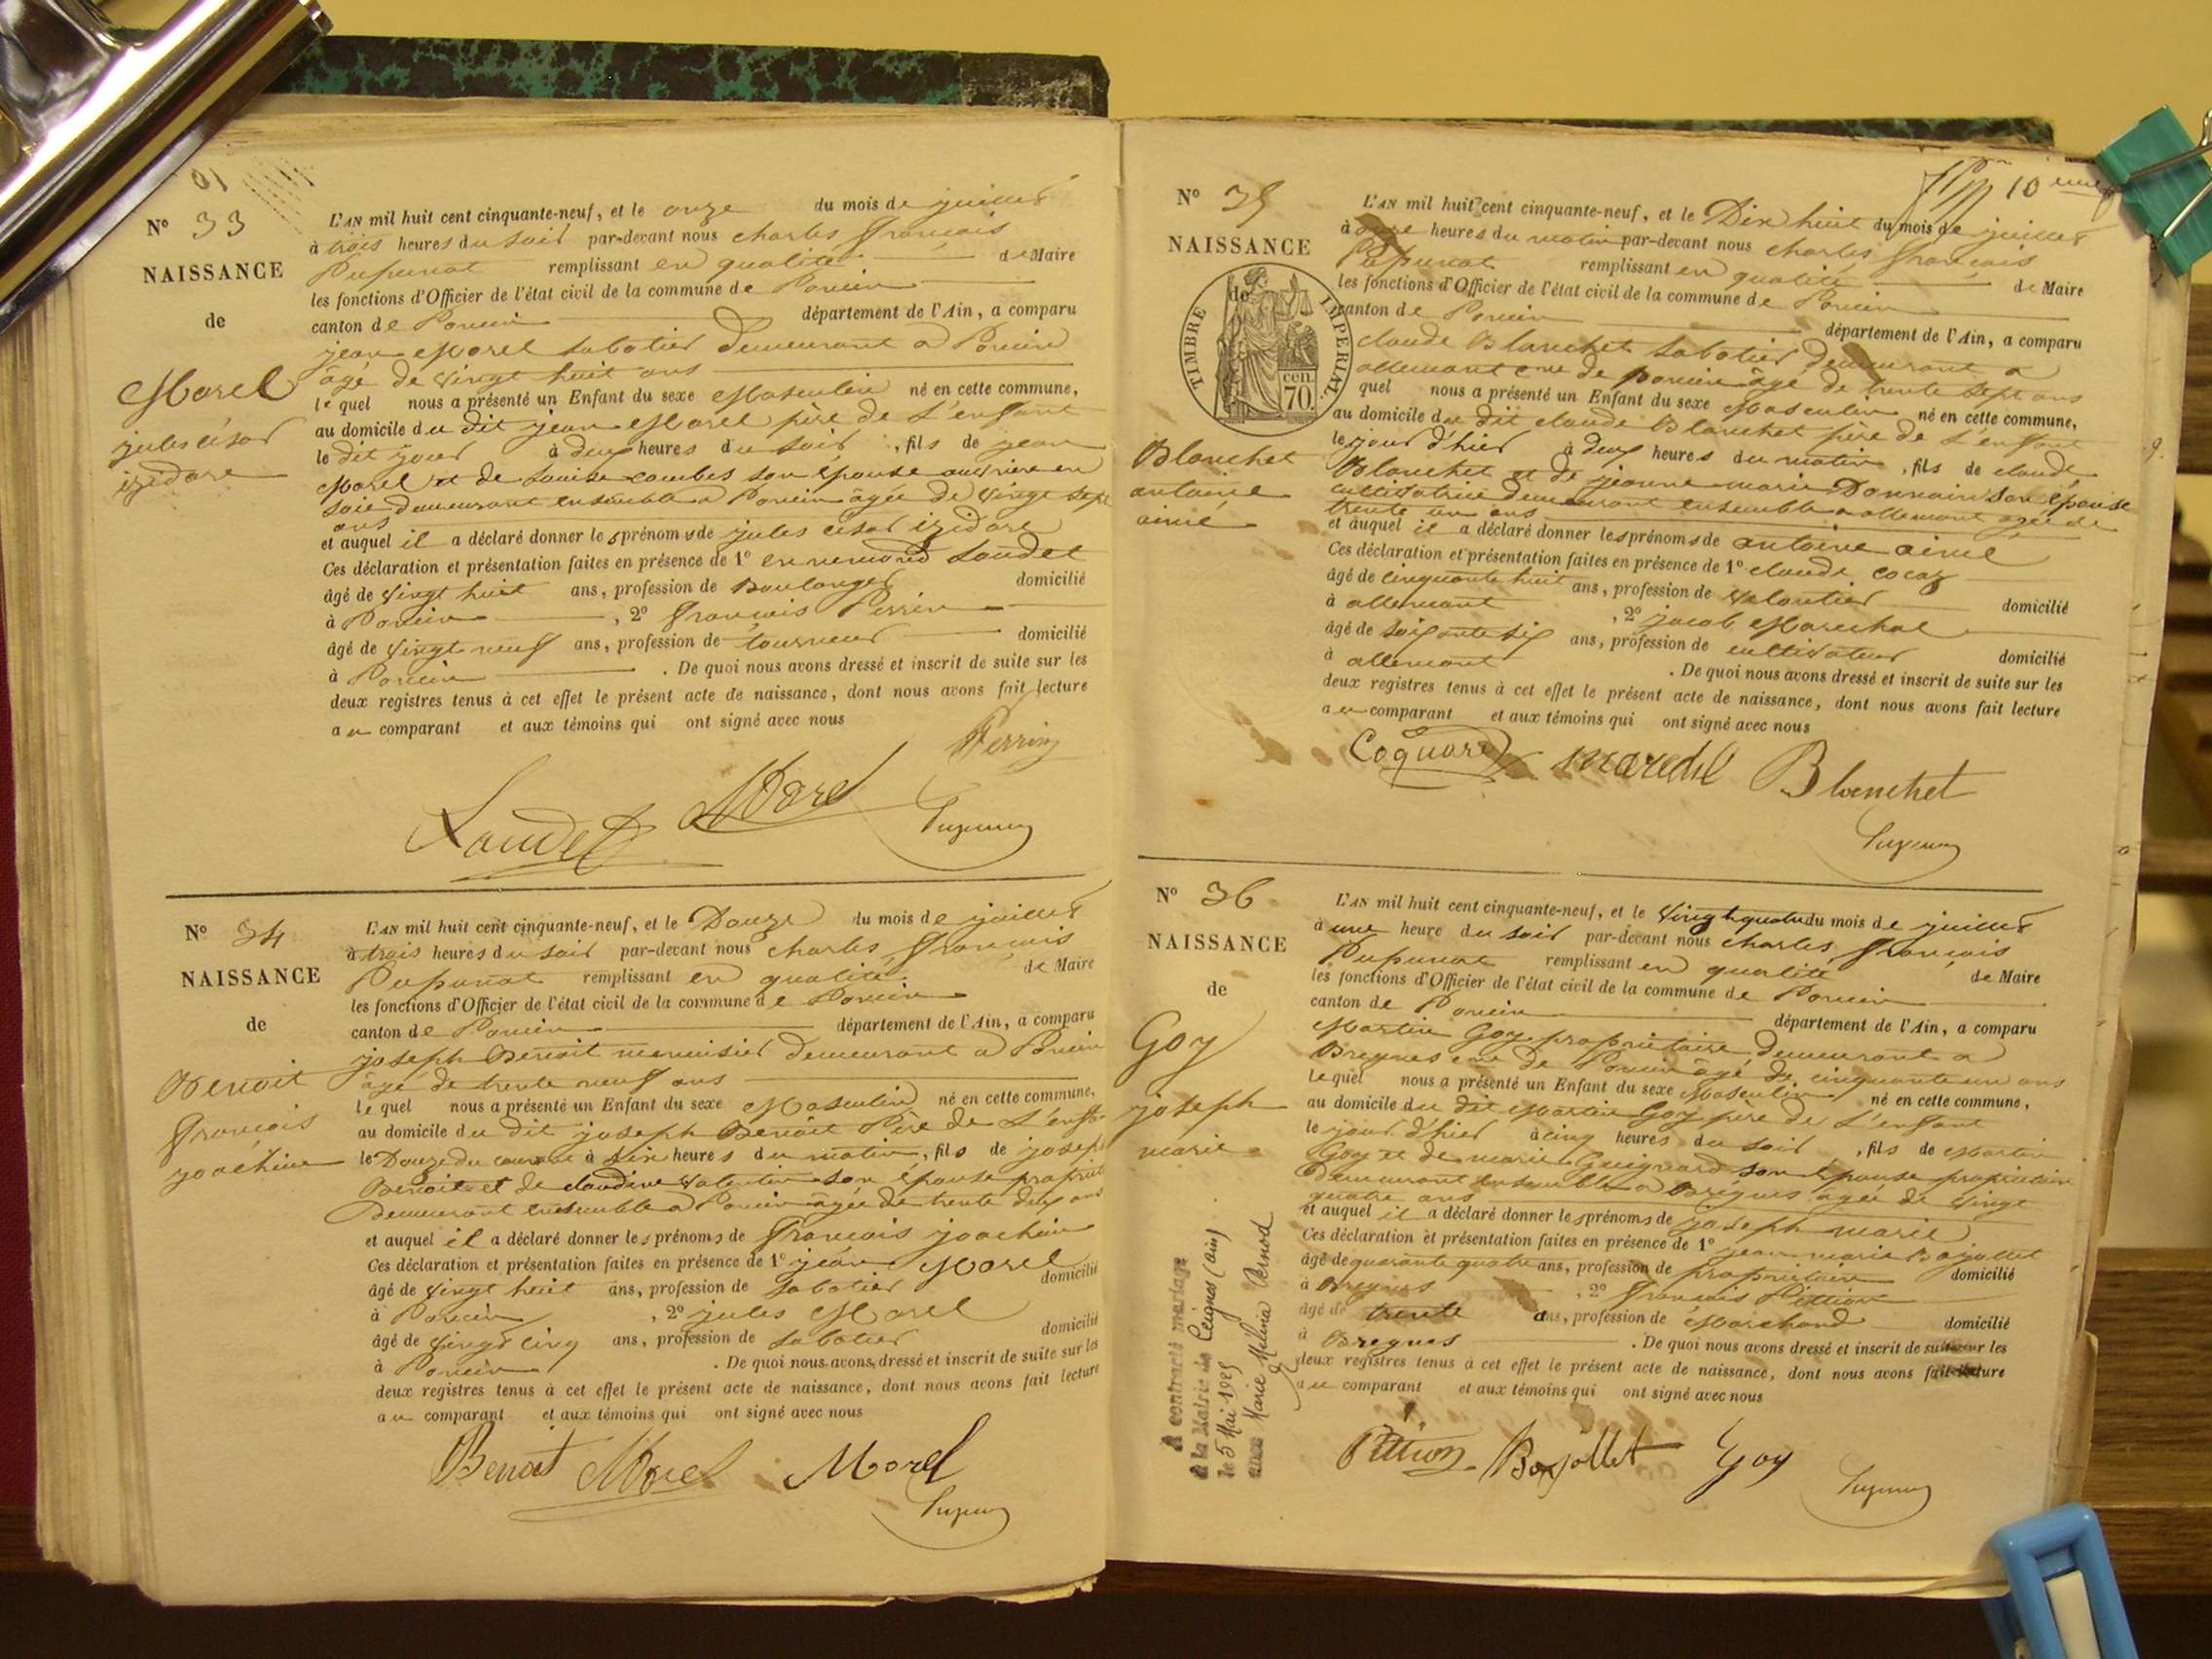 N° 33
NAISSANCE
de
Morel
jules césar
izidore
L'AN mil huit cent cinquante-neuf, et le onze du mois de juillet
à trois heures du soir par-devant nous charles françois
Pupunat remplissant en qualité de Maire
les fonctions d'Officier de l'état civil de la commune de Poncin
canton de Poncin département de l'Ain, a comparu
jean Morel sabotier demeurant a Poncin
âgé de vingt huit ans
le quel nous a présenté un Enfant du sexe Masculin né en cette commune,
au domicile du dit jean Morel père de L'enfant
le dit jour à deux heures du soir, fils de jean
Morel et de Louise combes son épouse ouvrière en
soie demeurant ensemble a Poncin agée de vingt sept
ans
et auquel il a déclaré donner les prénoms de jules césar izidore
Ces déclaration et présentation faites en présence de 1° Laudet
âgé de vingt huit ans, profession de Boulanger domicilié
à Poncin, 2° françois Perrin
âgé de vingt neuf ans, profession de tourneur domicilié
à Poncin. De quoi nous avons dressé et inscrit de suite sur les
deux registres tenus à cet effet le présent acte de naissance, dont nous avons fait lecture
au comparant et aux témoins qui ont signé avec nous
Perrin
Laudet Morel Pupunat
N° 34
NAISSANCE
de
Benoit
françois
joachim
L'AN mil huit cent cinquante-neuf, et le Douze du mois de juillet
à trois heures du soir par-devant nous charles françois
Pupunat remplissant en qualité de Maire
les fonctions d'Officier de l'état civil de la commune de Poncin
canton de Poncin département de l'Ain, a comparu
joseph Benoit menuisier demeurant a Poncin
âgé de trente neuf ans
le quel nous a présenté un Enfant du sexe Masculin né en cette commune,
au domicile du dit joseph Benoit Père de L'enfant
le Douze du courant à dix heures du matin, fils de joseph
Benoit et de claudine Valentin son épouse
demeurant ensemble a Poncin âgée de trente deux ans
et auquel il a déclaré donner les prénoms de françois joachim
Ces déclaration et présentation faites en présence de 1° jean Morel
âgé de vingt huit ans, profession de sabotier domicilié
à Poncin, 2° jules Morel
âgé de vingt cinq ans, profession de sabotier domicilié
à Poncin. De quoi nous avons dressé et inscrit de suite sur les
deux registres tenus à cet effet le présent acte de naissance, dont nous avons fait lecture
au comparant et aux témoins qui ont signé avec nous
Benoit Morel Morel
Pupunat
10 eme
N° 35
NAISSANCE
de
TIMBRE IMPERIAL.
70. cen.
Blanchet
antoine
aimé
L'AN mil huit cent cinquante-neuf, et le Dix huit du mois de juillet
à onze heures du matin par-devant nous charles françois
Pupunat remplissant en qualité de Maire
les fonctions d'Officier de l'état civil de la commune de Poncin
canton de Poncin département de l'Ain, a comparu
claude Blanchet sabotier demeurant a
allemant cne de poncin âgé de trente sept ans
quel nous a présenté un Enfant du sexe Masculin né en cette commune,
au domicile du dit claude Blanchet père de L'enfant
le jour d'hier à deux heures du matin, fils de claude
Blanchet et de jeanne marie Donnain son épouse
cultivatrice demeurant ensemble a allemant agée de
trente un ans
et auquel il a déclaré donner les prénoms de antoine aimé
Ces déclaration et présentation faites en présence de 1° claude cocaz
âgé de cinquante huit ans, profession de domicilié
à allemant, 2° jacob Marechal
âgé de soixante six ans, profession de cultivateur domicilié
à allemant. De quoi nous avons dressé et inscrit de suite sur les
deux registres tenus à cet effet le présent acte de naissance, dont nous avons fait lecture
au comparant et aux témoins qui ont signé avec nous
Coquard Blanchet
Pupunat
N° 36
NAISSANCE
de
Goy
joseph
marie
L'AN mil huit cent cinquante-neuf, et le vingt quatre du mois de juillet
à une heure du soir par-devant nous charles françois
Pupunat remplissant en qualité de Maire
les fonctions d'Officier de l'état civil de la commune de Poncin
canton de Poncin département de l'Ain, a comparu
Martin Goy propriétaire demeurant a
Bregnes cne de Poncin âgé de cinquante un ans
le quel nous a présenté un Enfant du sexe Masculin né en cette commune,
au domicile du dit Martin Goy père de L'enfant
le jour d'hier à cinq heures du soir, fils de Martin
Goy et de marie Guignard son épouse propriétaire
demeurant ensemble a Brégnes agée de vingt
quatre ans
et auquel il a déclaré donner les prénoms de joseph marie
Ces déclaration et présentation faites en présence de 1° jean marie Bojollet
âgé de quarante quatre ans, profession de propriétaire domicilié
à Bregnes, 2° françois Pittion
âgé de trente ans, profession de Marchand domicilié
à Bregnes. De quoi nous avons dressé et inscrit de suite sur les
deux registres tenus à cet effet le présent acte de naissance, dont nous avons fait lecture
au comparant et aux témoins qui ont signé avec nous
Pittion Bojollet Goy Pupunat
A contracté mariage
à la Mairie de Leignes (Ain)
le 5 Mai
avec Marie Mélina Pernod